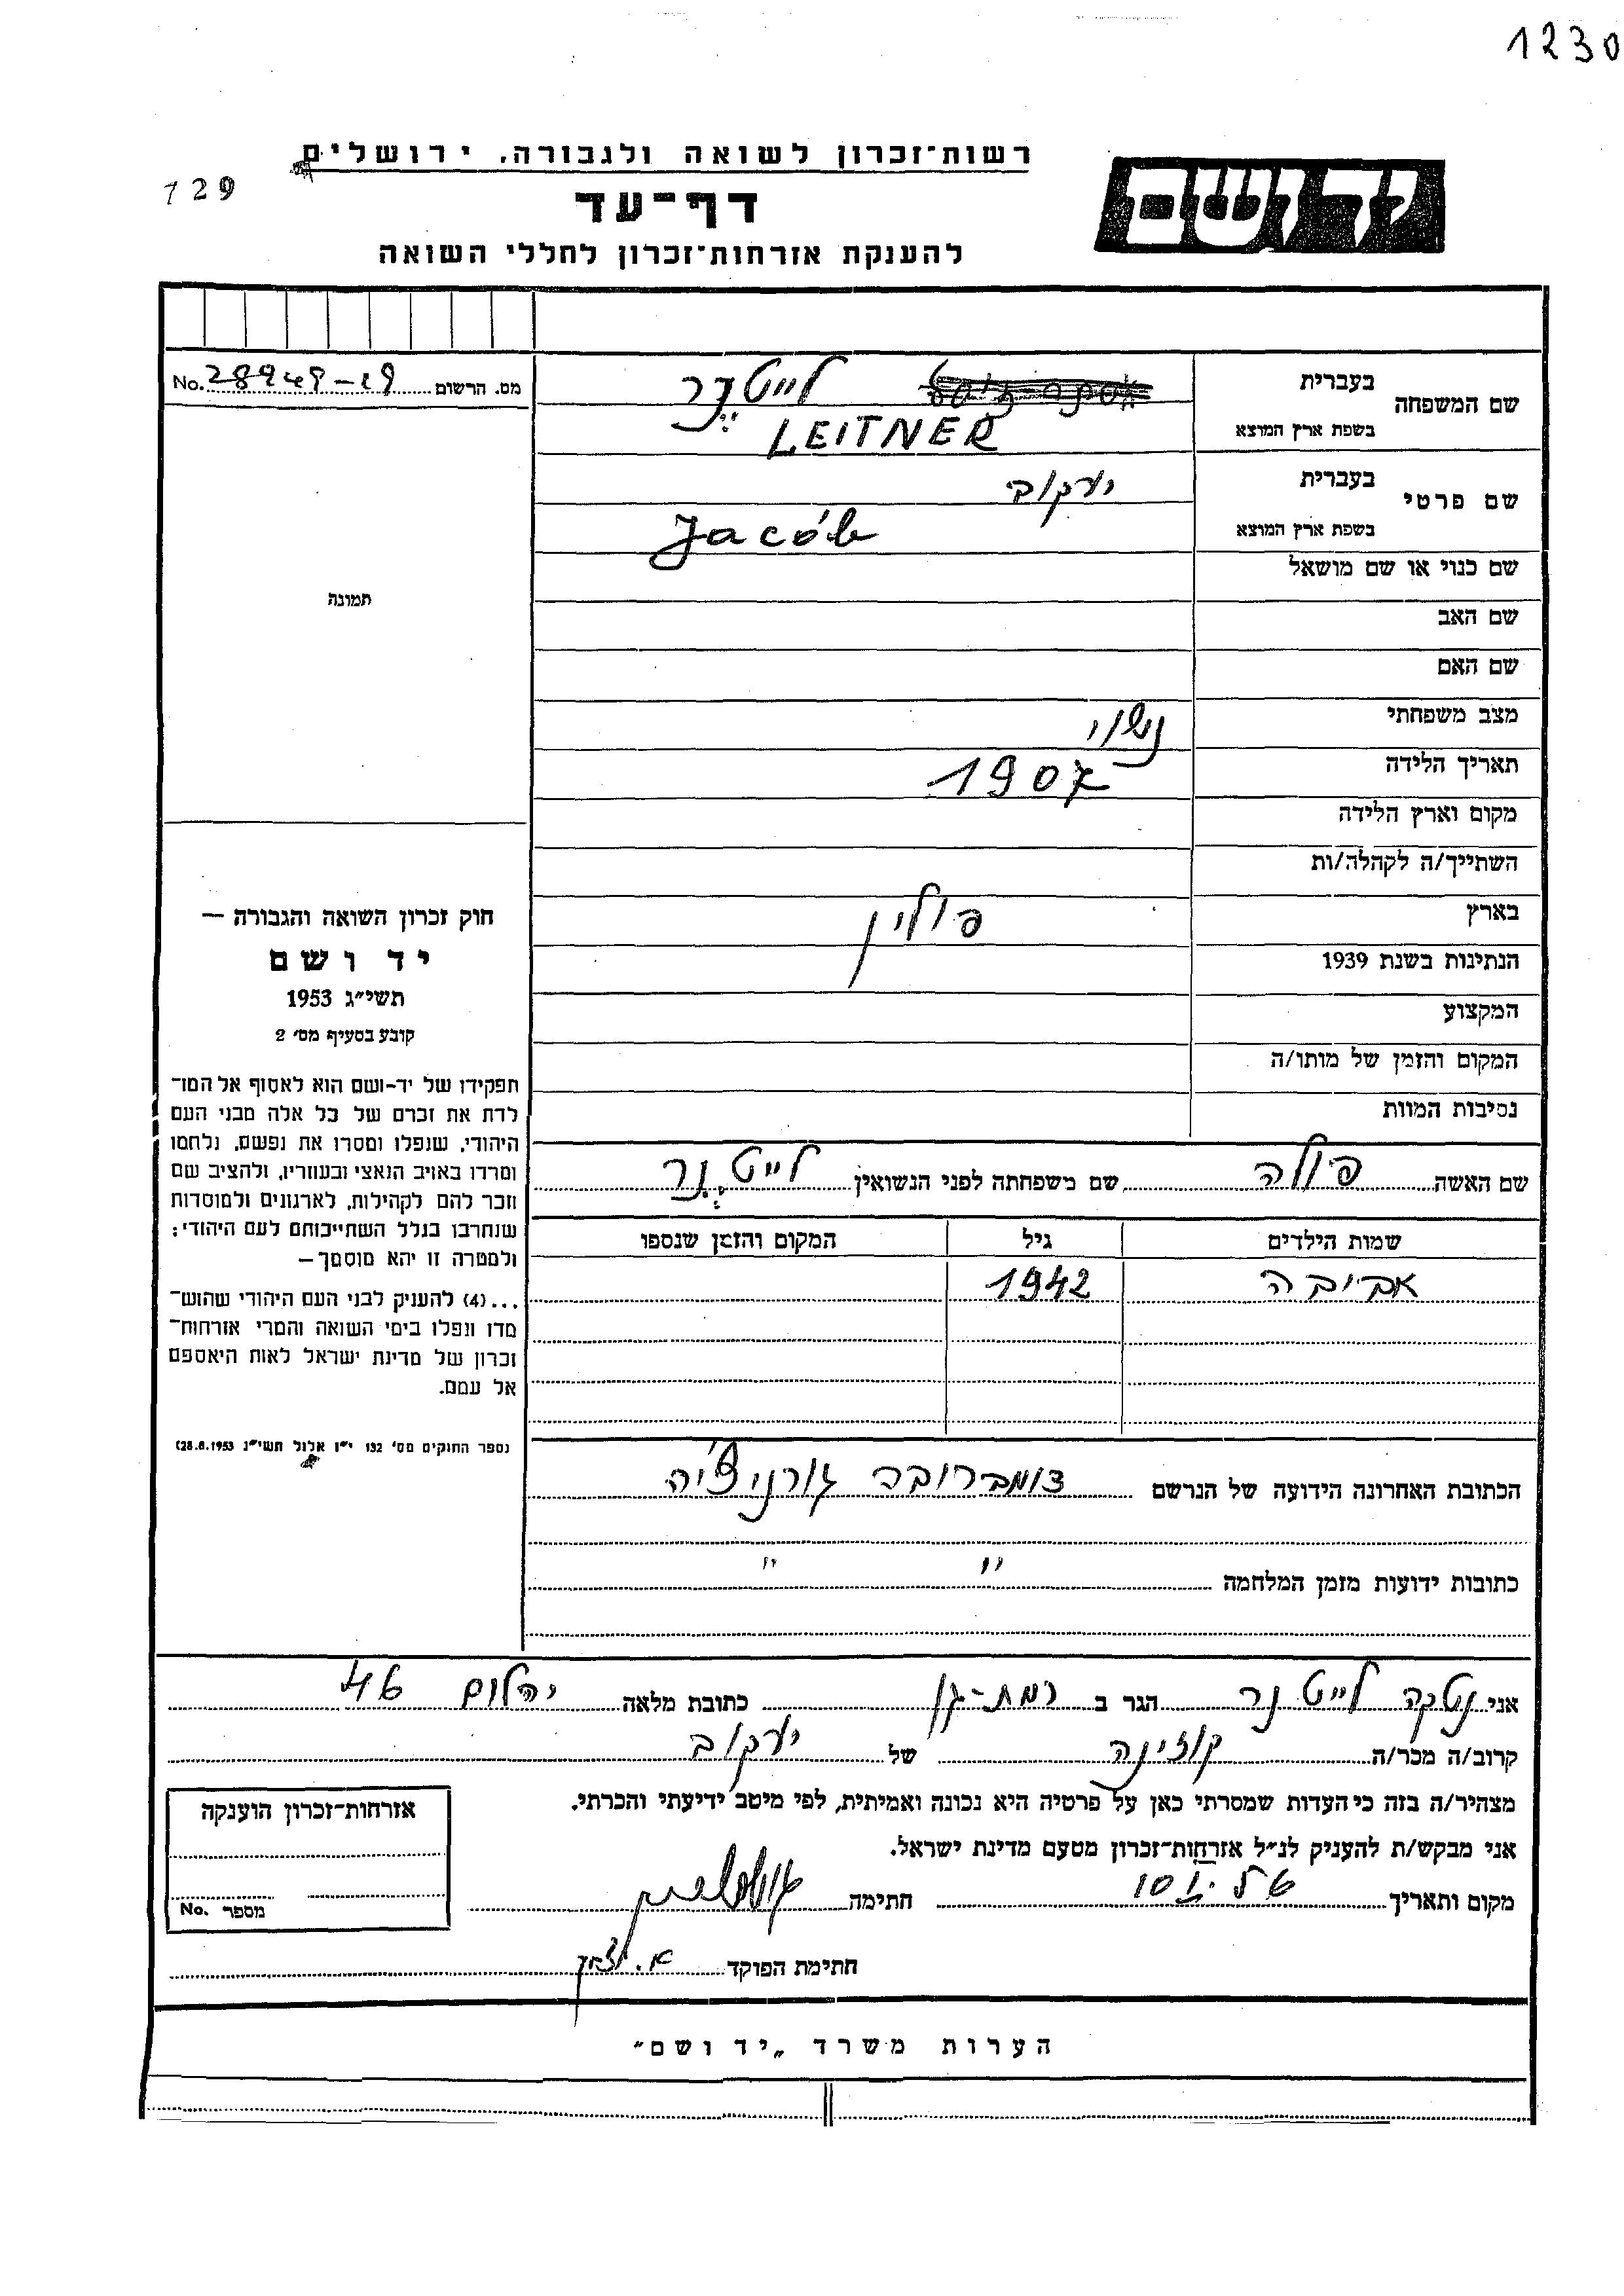 1230
רשות־זכרון לשואה ולגבורה, ירושלים
729
יד ושם
דף־עד
להענקת אזרחות־זכרון לחללי השואה
שם המשפחה בעברית לייטנר
בשפת ארץ המוצא LEITNER
שם פרטי בעברית יעקוב
בשפת ארץ המוצא Jacób
שם כנוי או שם מושאל
שם האב
שם האם
מצב משפחתי נשוי
תאריך הלידה 1907
מקום וארץ הלידה
השתייך/ה לקהלה/ות
בארץ פולין
הנתינות בשנת 1939
המקצוע
המקום והזמן של מותו/ה
נסיבות המוות
מס. הרשום No.
תמונה
חוק זכרון השואה והגבורה —
יד ושם
תשי״ג 1953
קובע בסעיף מס׳ 2
תפקידו של יד-ושם הוא לאסוף אל המו־
לדת את זכרם של כל אלה מבני העם
היהודי, שנפלו ומסרו את נפשם, נלחמו
ומרדו באויב הנאצי ובעוזריו, ולהציב שם
וזכר להם לקהילות, לארגונים ולמוסדות
שנחרבו בגלל השתייכותם לעם היהודי;
ולמטרה זו יהא מוסמך—
...(4) להעניק לבני העם היהודי שהוש־
מדו ונפלו בימי השואה והמרי אזרחות־
זכרון של מדינת ישראל לאות היאספם
אל עמם.
(ספר החוקים מס׳ 132 י״ז אלול תשי״ג 28.8.1953)
שם האשה פולה שם משפחתה לפני הנשואין לייטנר
שמות הילדים גיל המקום והזמן שנספו
אביבה 1942
הכתובת האחרונה הידועה של הנרשם דומברובה גורניצ'יה
כתובות ידועות מזמן המלחמה " "
אני נטקה לייטנר הגר ב רמת-גן כתובת מלאה יהלום 46
קרוב/ה מכר/ה קוזינה של יעקוב
מצהיר/ה בזה כי העדות שמסרתי כאן על פרטיה היא נכונה ואמיתית, לפי מיטב ידיעתי והכרתי.
אני מבקש/ת להעניק לנ״ל אזרחות־זכרון מטעם מדינת ישראל.
מקום ותאריך חתימה
חתימת הפוקד
אזרחות־זכרון הוענקה
מספר No.
הערות משרד „יד ושם״